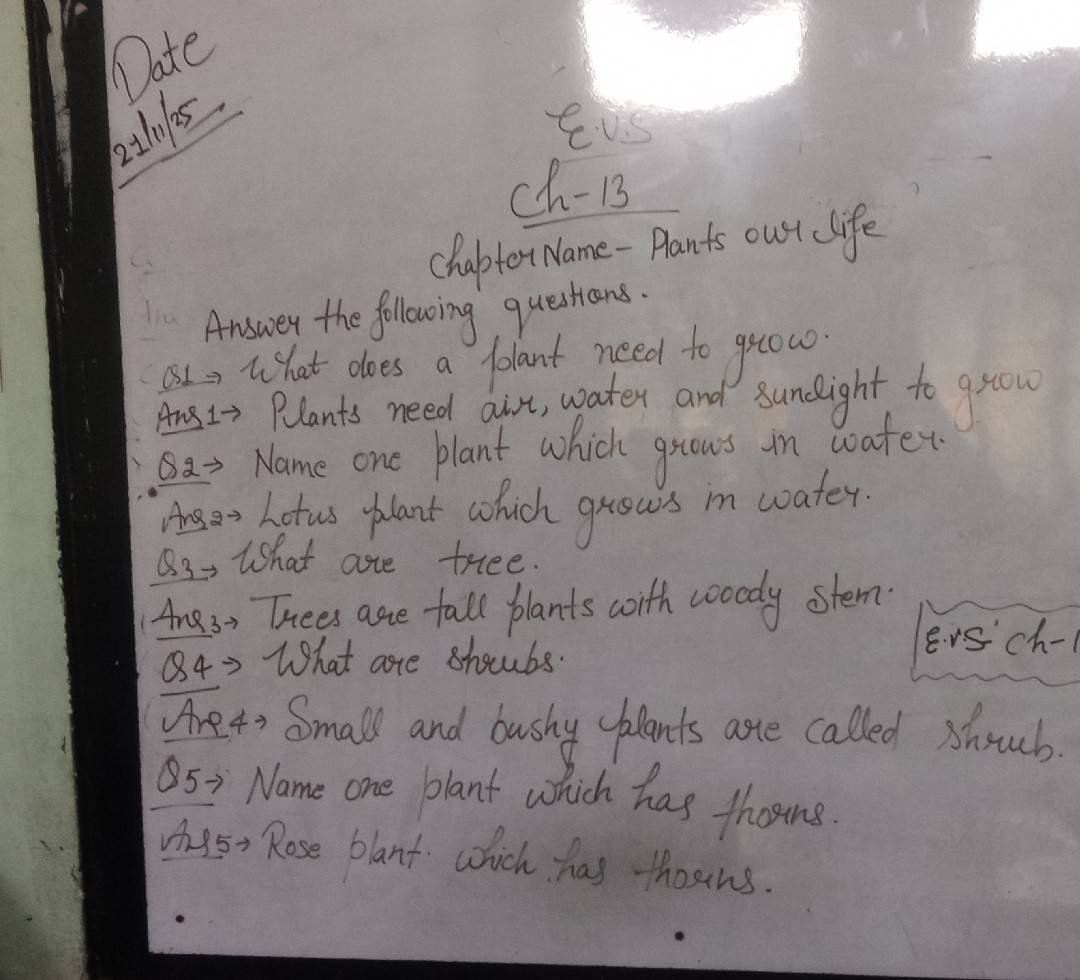 Date
21/11/25
E.V.S
Ch-13
Chapter Name - Plants our life
Answer the following questions.
Q1→ What does a plant need to grow.
Ans1→ Plants need air, water and sunlight to grow
Q2→ Name one plant which grows in water.
Ans2→ Lotus plant which grows in water.
Q3→ What are tree.
Ans3→ Trees are tall plants with woody stem.
E.VS Ch-1
Q4→ What are shrubs.
Ans4→ Small and bushy plants are called shrub.
Q5→ Name one plant which has thorns.
Ans5→ Rose plant. which has thorns.